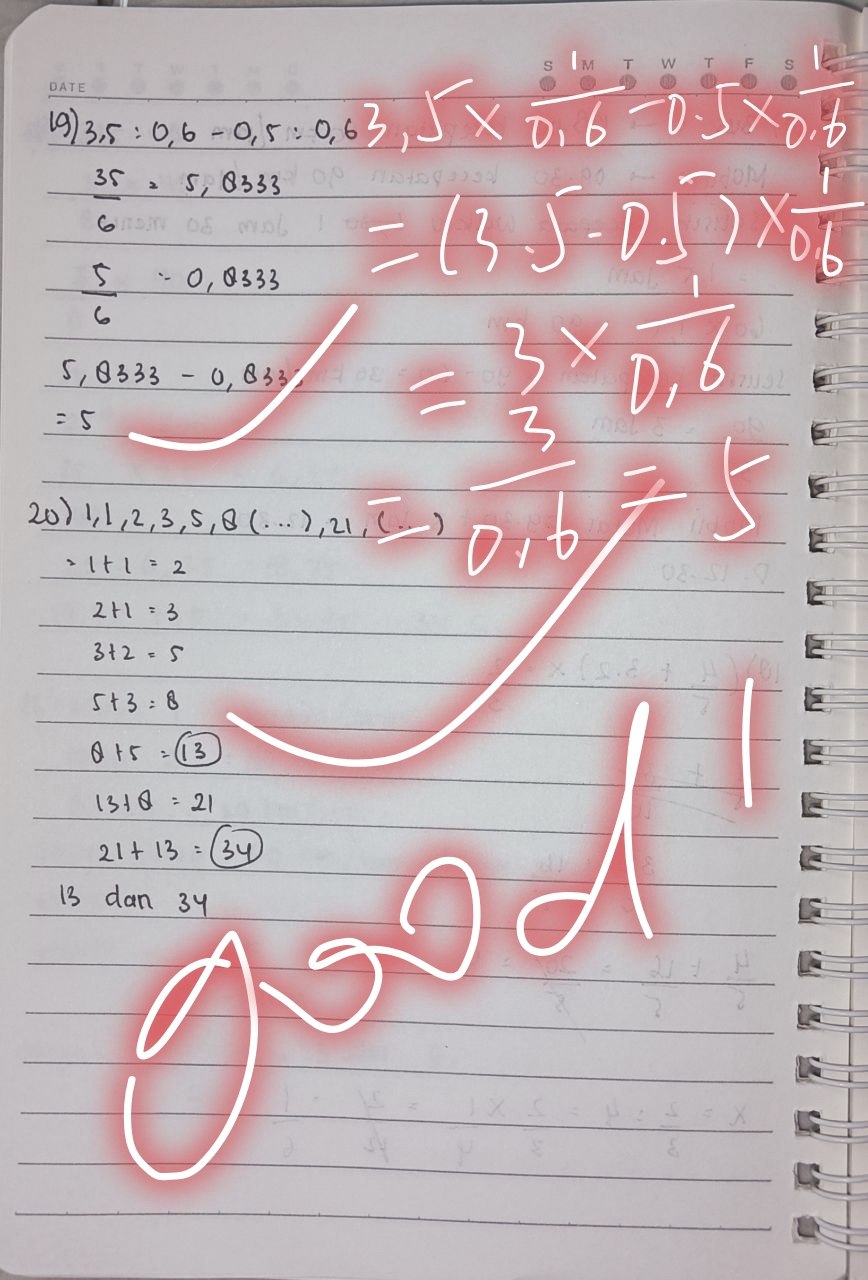 S M T W T F S
DATE
19) 3,5 : 0,6 - 0,5 : 0,6
35/6 = 5,8333
5/6 = 0,8333
5,8333 - 0,8333
= 5
3,5 × 1/0,6 - 0.5 × 1/0.6
= (3.5 - 0.5) × 1/0.6
= 3 × 1/0,6
= 3/0,6 = 5
20) 1,1,2,3,5,8 (...), 21, (...)
= 1+1 = 2
2+1 = 3
3+2 = 5
5+3 = 8
8+5 = 13
13+8 = 21
21+13 = 34
13 dan 34
good!